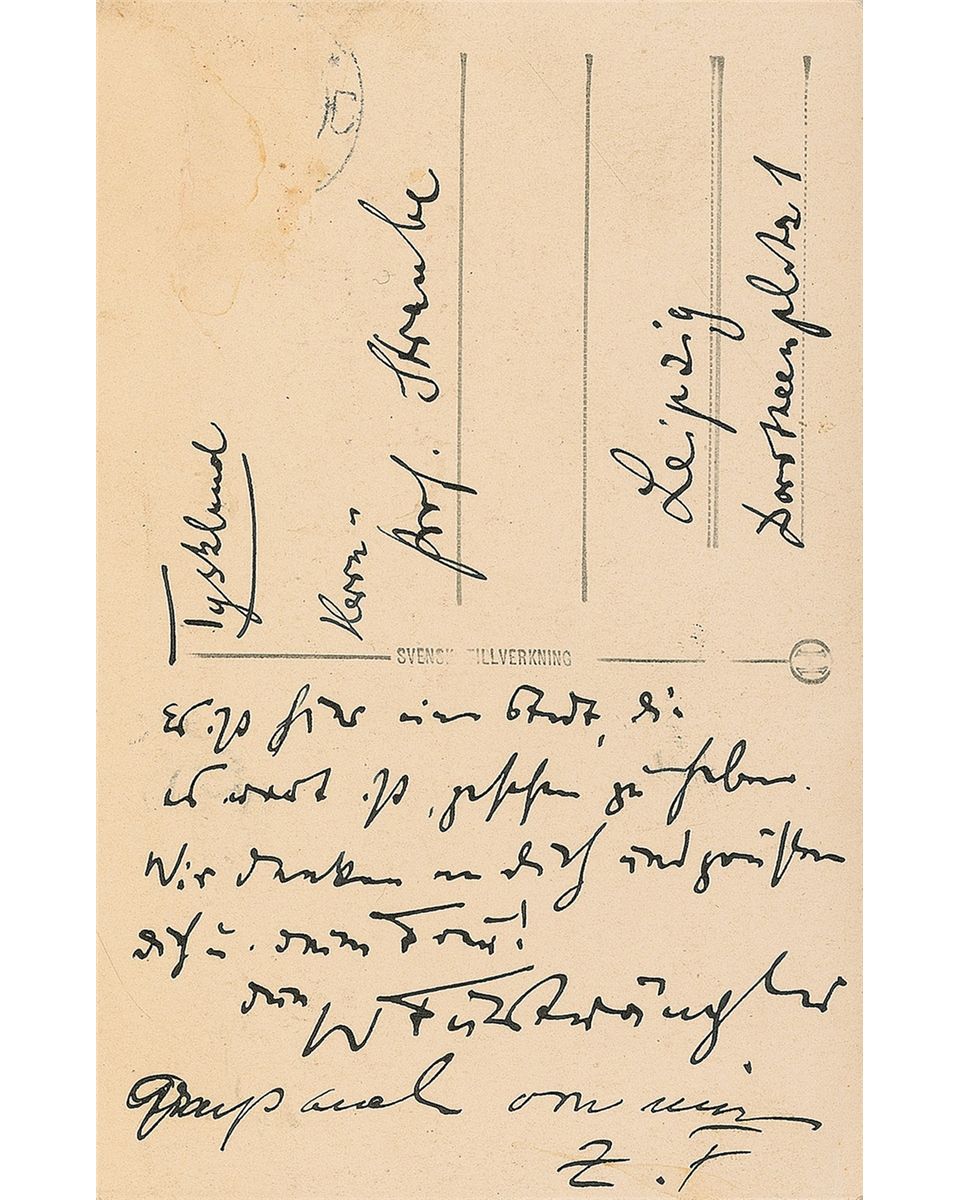 Tyskland
Herrn
Prof. Straube
Leipzig
Dorotheenplatz 1
SVENSK TILLVERKNING
Es ist hier eine Stadt, die
es wert ist, gesehen zu haben.
Wir denken an dich und grüßen
dich u. deine Frau!
dein
W Furtwängler
Gruß auch von mir
Z. F